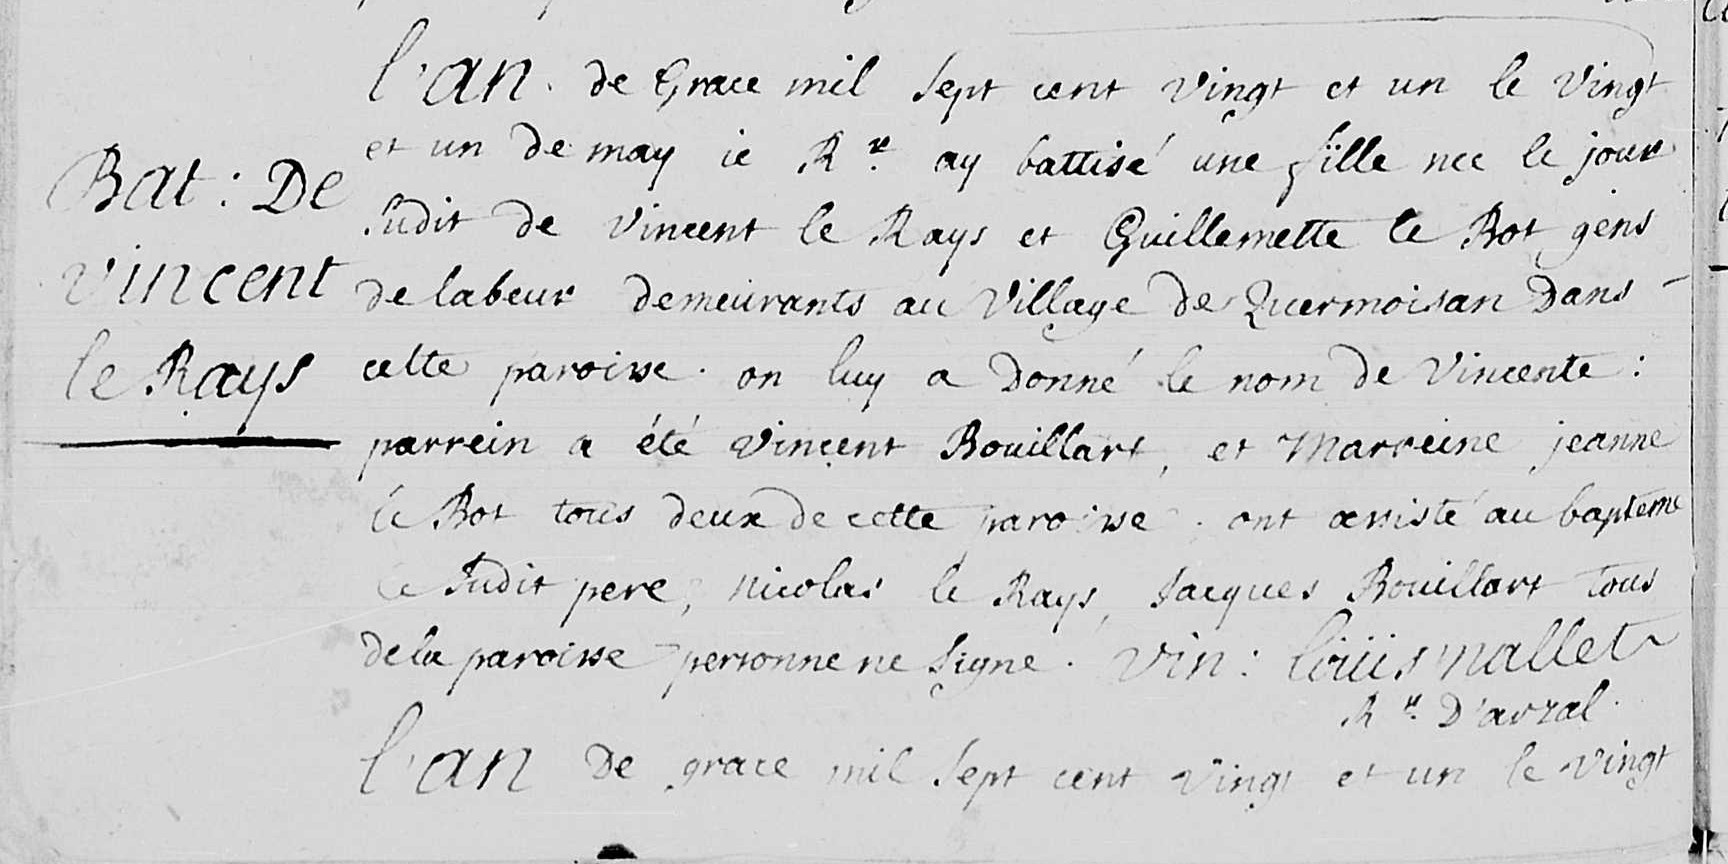 l'an de Grace mil sept cent vingt et un le vingt
et un de may ie Rr. ay battisé une fille nee le jour
Bat : De
sudit de Vincent le Rays et Guillemette le Bot gens
vincent
de labeur demeurants au village de Quermoisan Dans -
le Rays
cette paroisse . on luy a Donné le nom de Vincente :
parrein a été Vincent Bouillart, et Marreine jeanne
le Bot tous deux de cette paroisse . ont assisté au baptême
le sudit pere, Nicolas le Rays, Jacques Bouillart tous
de la paroisse personne ne signe . Vin : loüis mallet
Rr. D'arzal .
l'an De grace mil sept cent vingt et un le vingt